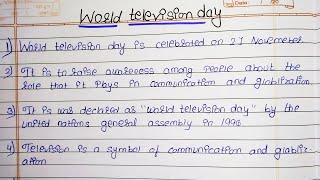 World television day
1) World television day is celebrated on 21 Novemeber
2) It is to raise awareness among people about the
role that it plays in communication and globlization.
3) It is was declared as "world television day" by the
united nations general assembly in 1996
4) Television is a symbol of communication and globliz-
ation